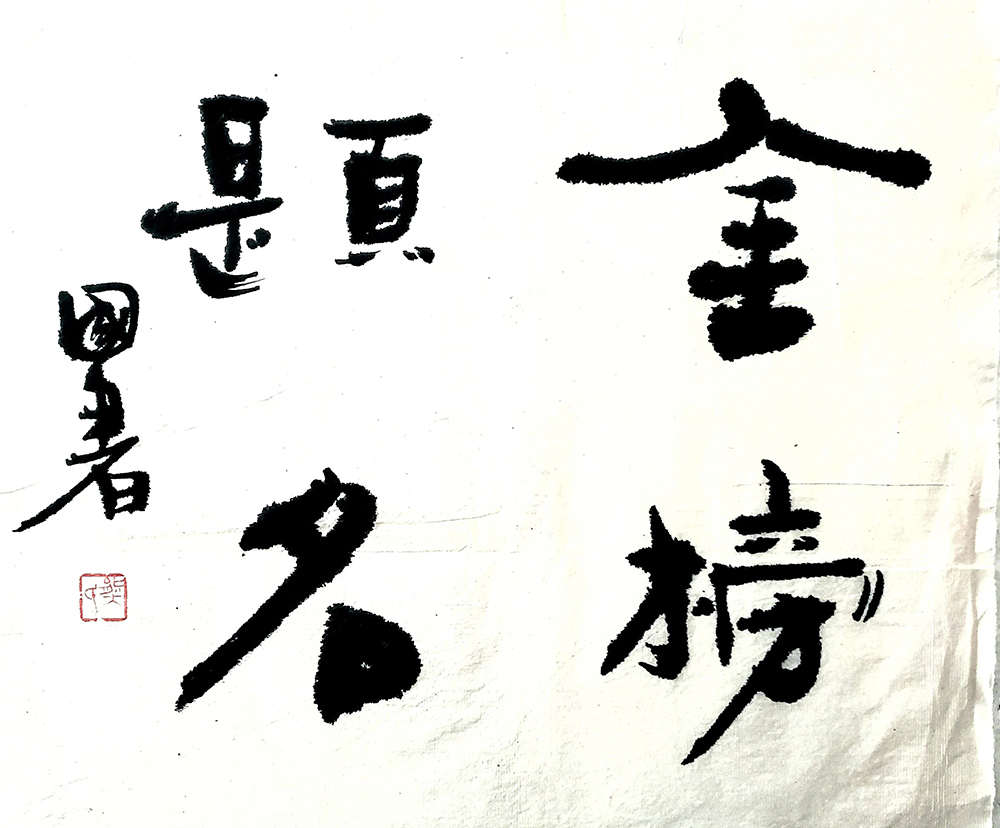 金榜
題名
國書